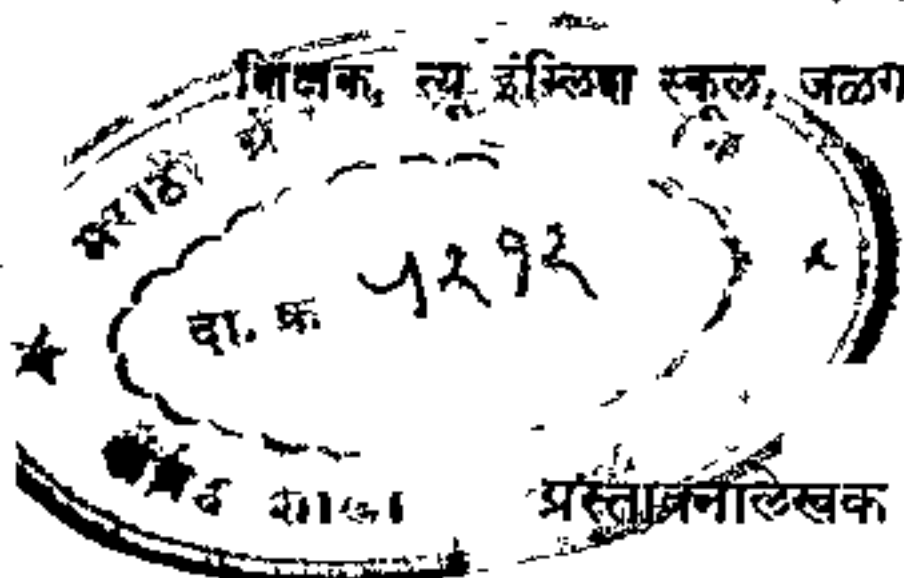 शिक्षक, न्यू इंग्लिश स्कूल, जळग
मराठी
दा. क्र. ५२१२
शाखा
प्रस्तावनालेखक